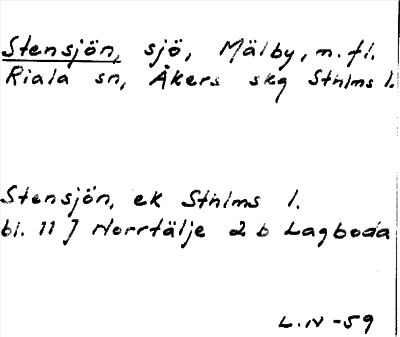 Stensjön, sjö, Mälby, m. fl.
Riala sn, Åkers skg Sthlms l.
Stensjön, ek Sthlms l.
bl. 11 J Norrtälje 2 b Lagboda
L. IV - 59